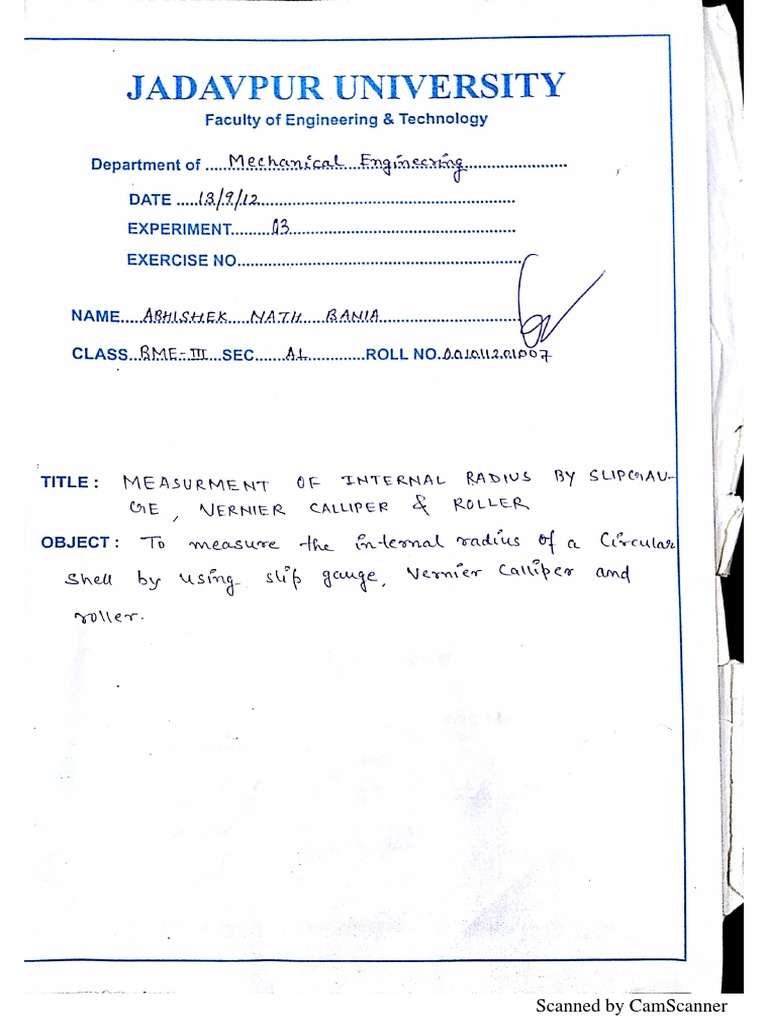 JADAVPUR UNIVERSITY
Faculty of Engineering & Technology
Department of ..... Mechanical Engineering.......................
DATE .....13/9/12....................................................
EXPERIMENT.........03.............................................
EXERCISE NO.........................................................
NAME....ABHISHEK NATH BANIA............................
CLASS..BME-III...SEC......A1............ROLL NO.001011201007
TITLE : MEASURMENT OF INTERNAL RADIUS BY SLIPGAU-
GE, VERNIER CALLIPER & ROLLER
OBJECT : To measure the internal radius of a Circular
Shell by using slip gauge, Vernier Calliper and
roller.
Scanned by CamScanner